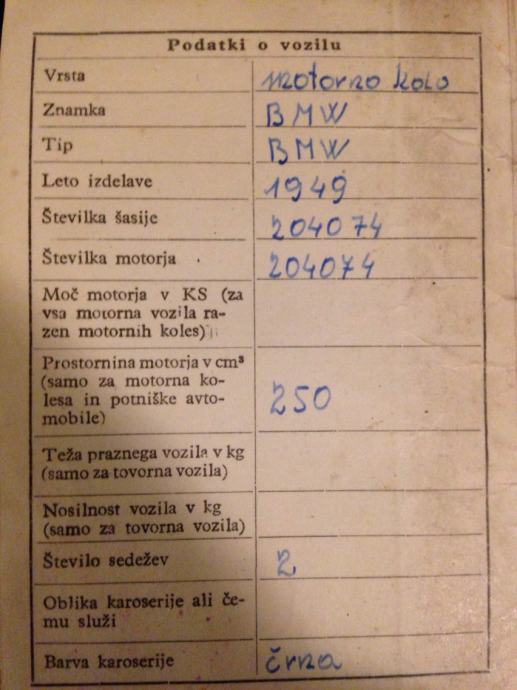 Podatki o vozilu
Vrsta motorno kolo
Znamka BMW
Tip BMW
Leto izdelave 1949
Številka šasije 204074
Številka motorja 204074
Moč motorja v KS (za
vsa motorna vozila ra-
zen motornih koles)
Prostornina motorja v cm³
(samo za motorna ko-
lesa in potniške avto-
mobile) 250
Teža praznega vozila v kg
(samo za tovorna vozila)
Nosilnost vozila v kg
(samo za tovorna vozila)
Število sedežev 2
Oblika karoserije ali če-
mu služi
Barva karoserije črna